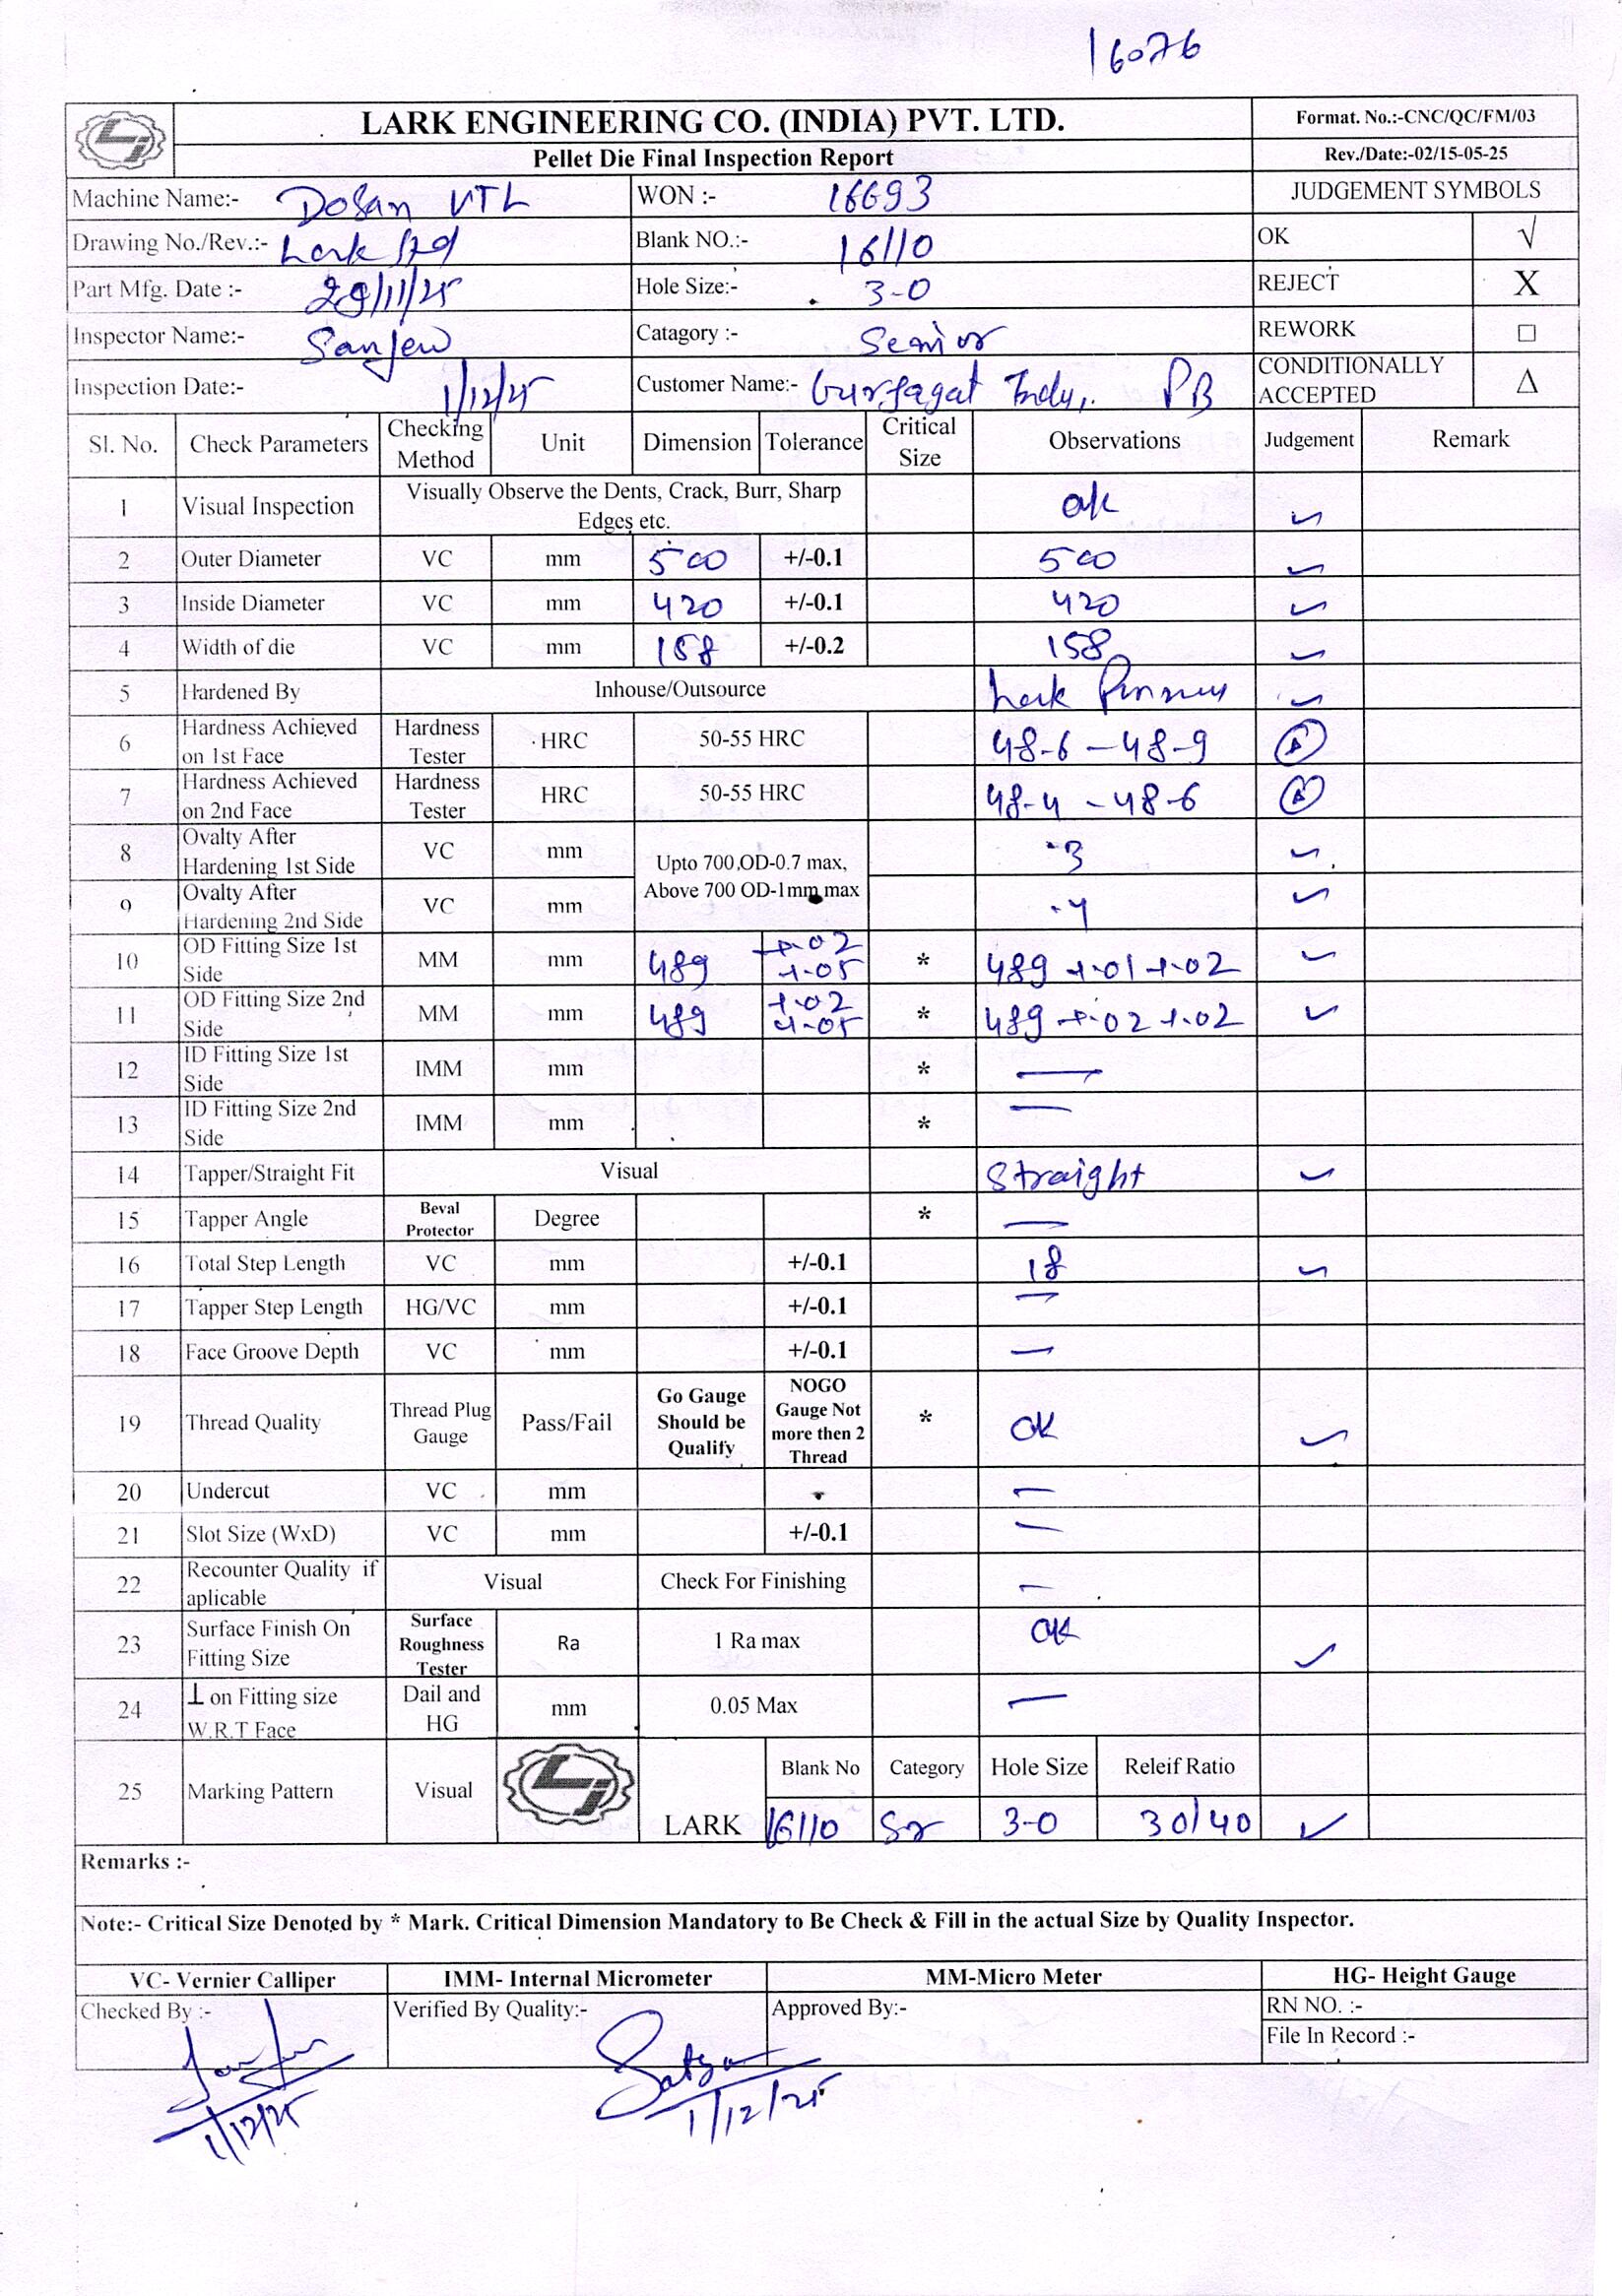 16076
LARK ENGINEERING CO. (INDIA) PVT. LTD. Format. No.:-CNC/QC/FM/03
Pellet Die Final Inspection Report Rev./Date:-02/15-05-25
Machine Name:- Dosan VTL WON :- 16693 JUDGEMENT SYMBOLS
Drawing No./Rev.:- Lark Std Blank NO.:- 16110 OK √
Part Mfg. Date :- 29/11/25 Hole Size:- 3-0 REJECT X
Inspector Name:- Sanjeev Catagory :- Senior REWORK □
Inspection Date:- 1/12/25 Customer Name:- Gurjagat Indu,. PB CONDITIONALLY ACCEPTED Δ
Sl. No. Check Parameters Checking Method Unit Dimension Tolerance Critical Size Observations Judgement Remark
1 Visual Inspection Visually Observe the Dents, Crack, Burr, Sharp Edges etc. ok ✓
2 Outer Diameter VC mm 500 +/-0.1 500 ✓
3 Inside Diameter VC mm 420 +/-0.1 420 ✓
4 Width of die VC mm 158 +/-0.2 158 ✓
5 Hardened By Inhouse/Outsource Lark ✓
6 Hardness Achieved on 1st Face Hardness Tester HRC 50-55 HRC 48-6 - 48-9
7 Hardness Achieved on 2nd Face Hardness Tester HRC 50-55 HRC 48-4 - 48-6
8 Ovalty After Hardening 1st Side VC mm Upto 700,OD-0.7 max, Above 700 OD-1mm max .3 ✓
9 Ovalty After Hardening 2nd Side VC mm .4 ✓
10 OD Fitting Size 1st Side MM mm 489 +.02 +.05 * 489 +.01 +.02 ✓
11 OD Fitting Size 2nd Side MM mm 489 +.02 +.05 * 489 +.02 +.02 ✓
12 ID Fitting Size 1st Side IMM mm * —
13 ID Fitting Size 2nd Side IMM mm * —
14 Tapper/Straight Fit Visual Straight ✓
15 Tapper Angle Beval Protector Degree * —
16 Total Step Length VC mm +/-0.1 18 ✓
17 Tapper Step Length HG/VC mm +/-0.1 —
18 Face Groove Depth VC mm +/-0.1 —
19 Thread Quality Thread Plug Gauge Pass/Fail Go Gauge Should be Qualify NOGO Gauge Not more then 2 Thread * OK ✓
20 Undercut VC mm —
21 Slot Size (WxD) VC mm +/-0.1 —
22 Recounter Quality if aplicable Visual Check For Finishing —
23 Surface Finish On Fitting Size Surface Roughness Tester Ra 1 Ra max OK ✓
24 ⊥ on Fitting size W.R.T Face Dail and HG mm 0.05 Max —
25 Marking Pattern Visual LARK Blank No Category Hole Size Releif Ratio
16110 Sr 3-0 30/40 ✓
Remarks :-
Note:- Critical Size Denoted by * Mark. Critical Dimension Mandatory to Be Check & Fill in the actual Size by Quality Inspector.
VC- Vernier Calliper IMM- Internal Micrometer MM-Micro Meter HG- Height Gauge
Checked By :- Verified By Quality:- Approved By:- RN NO. :-
File In Record :-
1/12/25 1/12/25